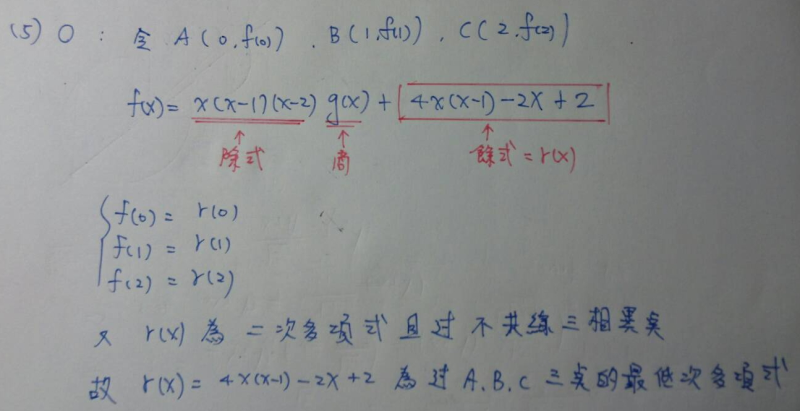 (5) O : 令 A(0,f(0)) , B(1,f(1)) , C(2,f(2))
f(x) = x(x-1)(x-2) g(x) + 4x(x-1)-2x+2
↑ ↑ ↑
除式 商 餘式=r(x)
f(0) = r(0)
f(1) = r(1)
f(2) = r(2)
又 r(x) 為二次多項式且过不共線三相異奌
故 r(x) = 4x(x-1)-2x+2 為过 A.B.C 三奌的最低次多項式